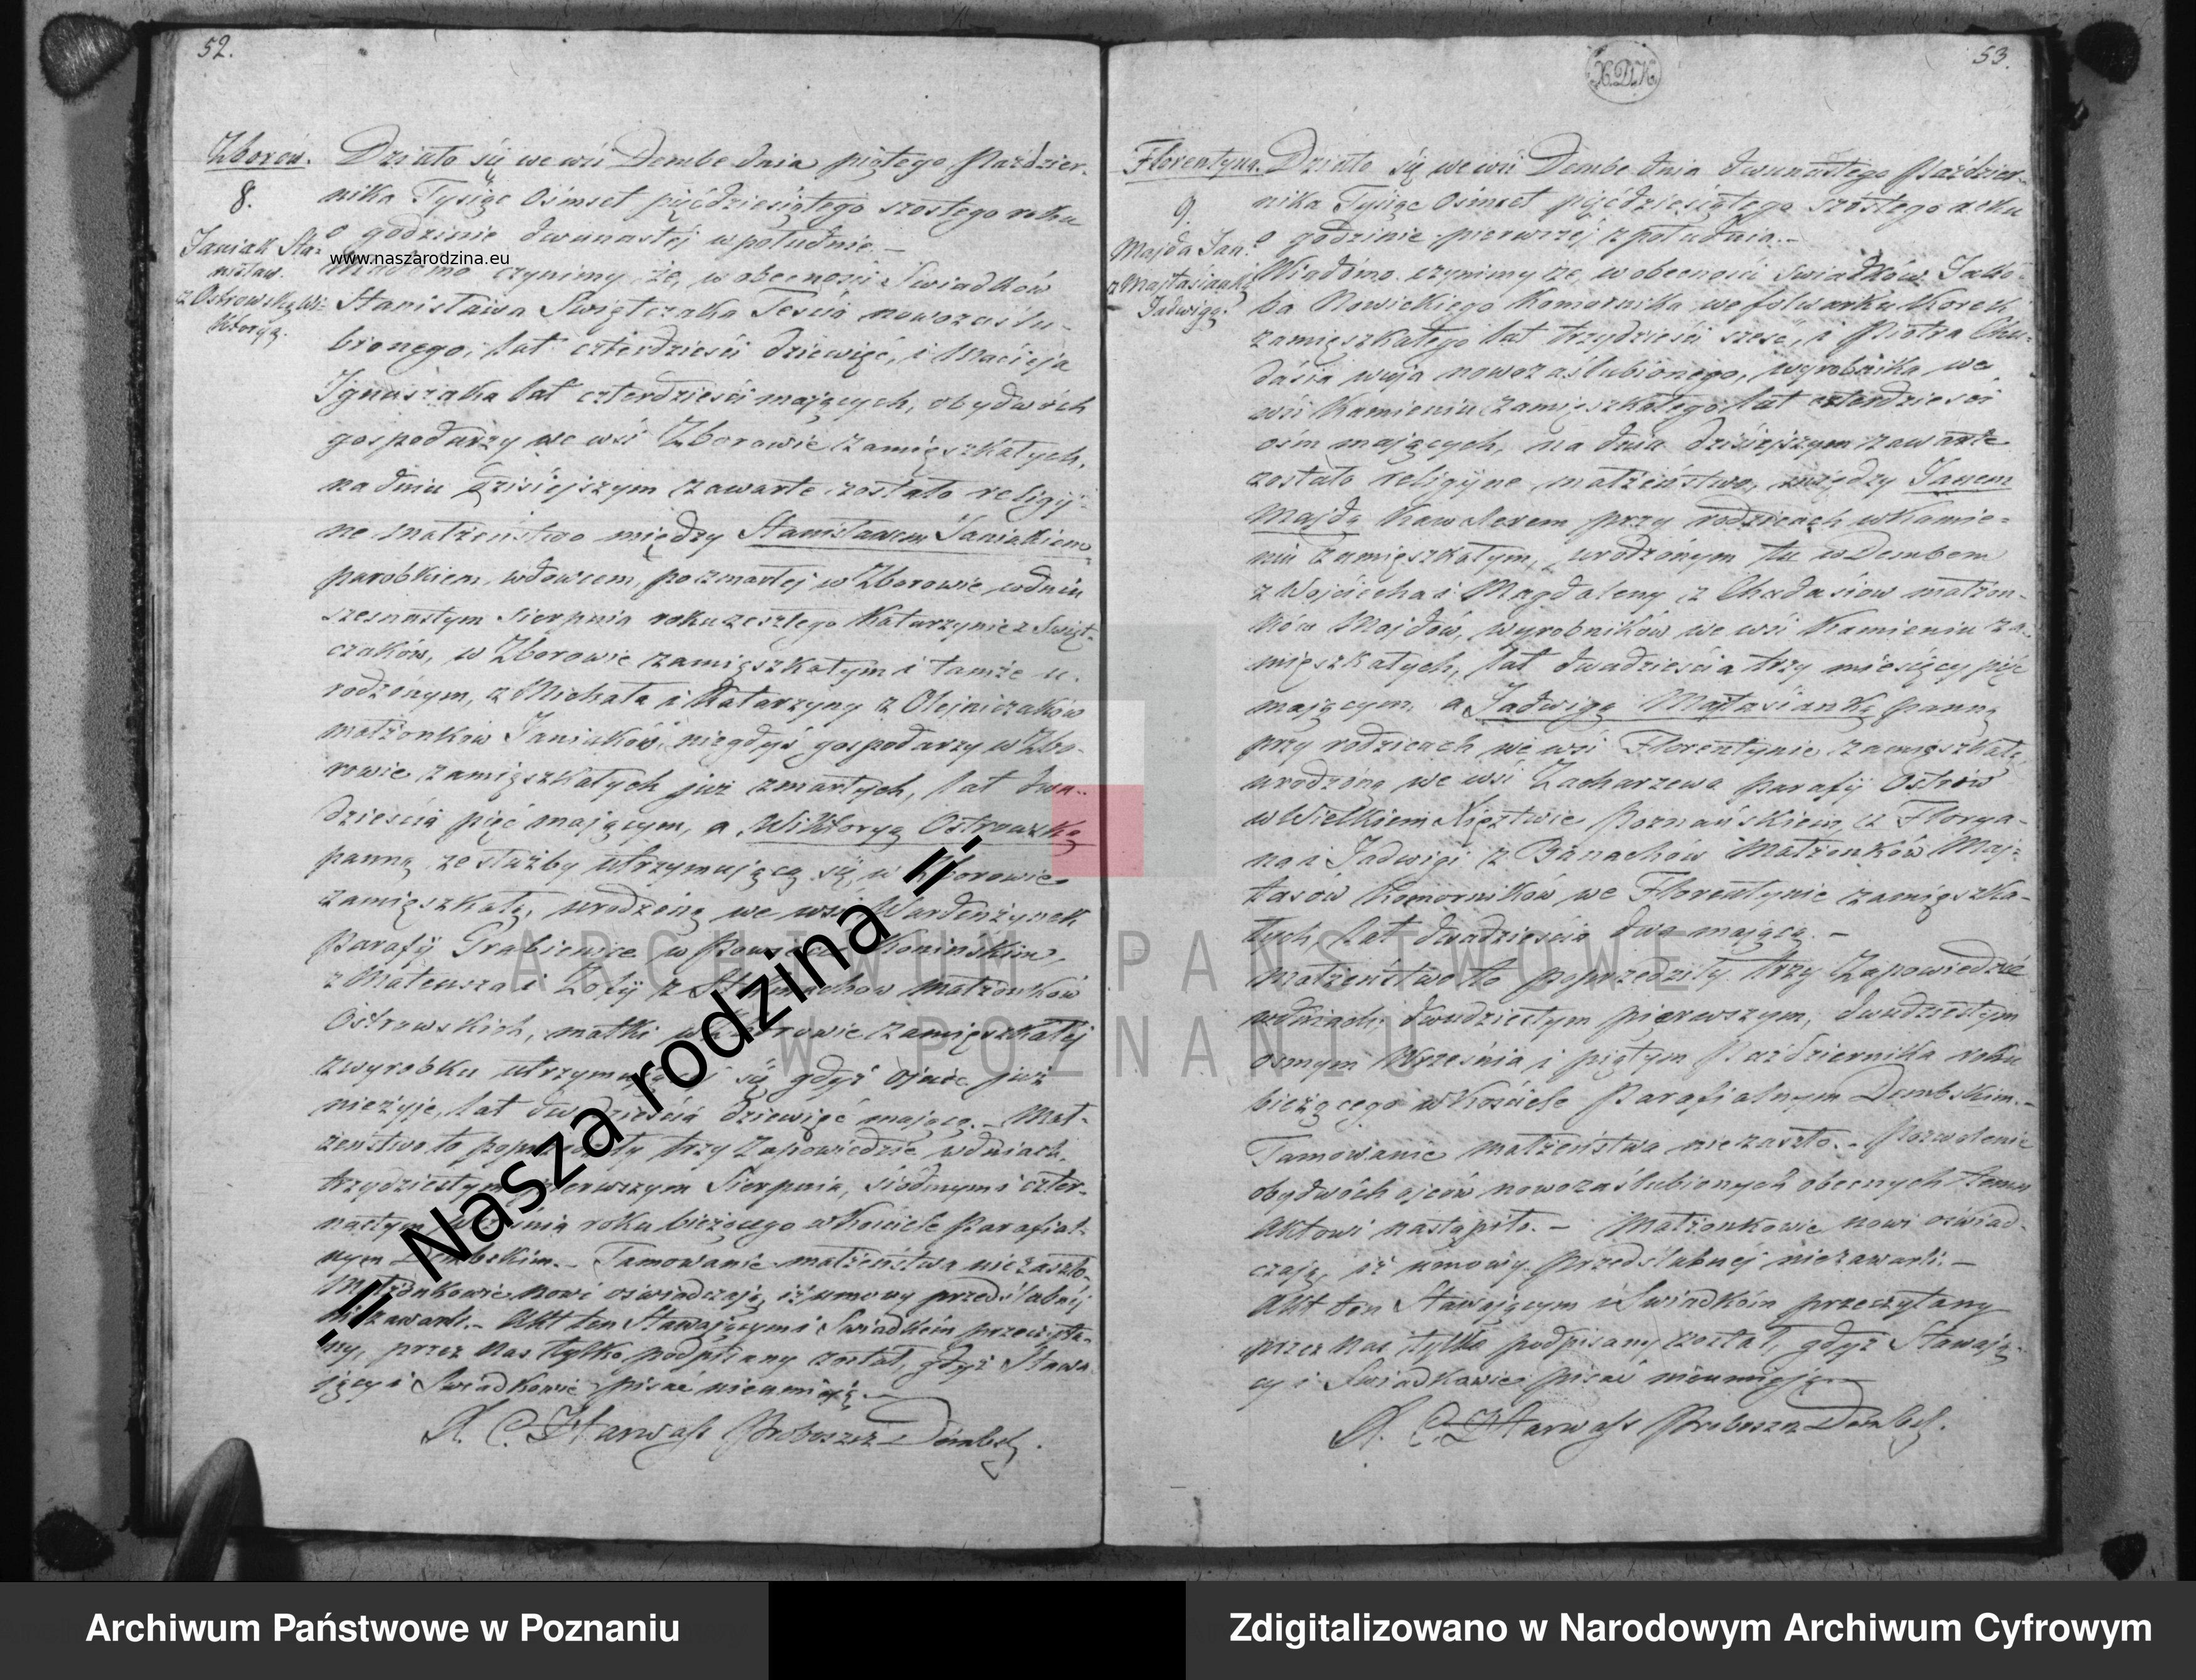 52.
Zborów.
8.
Janiak Sta=
nisław.
z Ostrowską Wi=
ktoryą.
Działo się we wsi Dembe dnia piątego Paździer-
nika Tysiąc Ośmset pięćdziesiątego szóstego roku
o godzinie dwunastej w południe. —
Wiadomo czynimy, że, w obecności Swiadków
Stanisława Swiętczaka Teścia nowozaślu-
bionego, lat czterdzieści dziewięć, i Macieja
Ignaszaka lat czterdzieści mających, obydwóch
gospodarzy we wsi Zborowie zamięszkałych,
na dniu dzisiejszym zawarte zostało religij-
ne małżeństwo między Stanisławem Janiakiem
parobkiem, wdowcem, po zmarłej w Zborowie w dniu
szesnastym Sierpnia roku zeszłego Katarzynie z Swięt-
czaków, w Zborowie zamięszkałym i tamże u-
rodzonym, z Michała i Katarzyny z Olejniczaków
małżonków Janiaków, niegdyś gospodarzy w Zbo-
rowie zamięszkałych już zmarłych, lat dwa-
dzieścia pięć mającym, a Wiktoryą Ostrowską
panną, ze służby utrzymującą się, w Zborowie
zamięszkałą, urodzoną we wsi
Parafij Grabienice w Powiecie Konińskim,
z Mateusza i Zofij z małżonków
Ostrowskich, matki w Zborowie zamięszkałej
z wyrobku utrzymującej się gdyż ojciec już
nieżyje, lat dwadzieścia dziewięć mającą. – Mał-
żeństwo to poprzedziły trzy Zapowiedzie w dniach,
trzydziestym pierwszym Sierpnia, siódmym i czter-
nastym Września roku bieżącego w Kościele Parafial-
nym Dembskim. – Tamowanie małżeństwa nie zaszło.
Małżonkowie nowi oświadczają, iż umowy przedślubnéj
niezawarli. – Akt ten Stawającym i Swiadkom przeczyta-
ny, przez Nas tylko podpisany został, gdyż Stawa-
jący i Swiadkowie pisać nieumieją. —
X. C. Harwass Proboszcz Dembsk.
53.
X.D.K.
Florentyna.
9.
Majda Jan.
z Majtasianką
Jadwigą.
Działo się we wsi Dembe dnia dwunastego Paździer-
nika Tysiąc Ośmset pięćdziesiątego szóstego roku
o godzinie pierwszej z południa. –
Wiadomo czynimy że, w obecności Swiadków Jakó-
ba Nowickiego Komornika we folwarku
zamięszkałego lat trzydzieści sześć, i Piotra Cha-
dasia wuja nowozaślubionego, wyrobnika we
wsi Kamieniu zamięszkałego lat czterdzieści
ośm mających, na dniu dzisiejszym zawarte
zostało religijne małżeństwo, między Janem
Majdą Kawalerem przy rodzicach w Kamie-
niu zamięszkałym, urodzonym tu w Dembem
z Wojciecha i Magdaleny z Chadasiow małżon-
ków Majdów, wyrobników we wsi Kamieniu za-
mięszkałych, lat dwadzieścia trzy miesięcy pięć
mającym, a Jadwigą Majtasianką panną
przy rodzicach we wsi Florentynie zamięszkałą
urodzoną we wsi Zacharzewa Parafij Ostrów
w Wielkiem Xięztwie Poznańskiem, z Florya-
na i Jadwigi z Banachów Małżonków Maj-
tasów Komorników we Florentynie zamięszka-
łych lat dwadzieścia dwa mającą. –
Małżeństwo to poprzedziły trzy Zapowiedzie
w dniach, dwudziestym pierwszym, dwudziestym
osmym Września i piątym Października roku
bieżącego w Kościele Parafialnym Dembskim. –
Tamowanie małżeństwa nie zaszło. – Pozwolenie
obydwóch ojców nowozaślubionych obecnych temu
Aktowi nastąpiło. – Małżonkowie nowi oświad-
czają, iż umowy przedślubnej niezawarli. –
Akt ten Stawającym i Swiadkom przeczytany
przez Nas tylko podpisany został, gdyż Stawają-
cy i Swiadkowie pisać nieumieją. —
X. C. Harwass Proboszcz Dembsk.
www.naszarodzina.eu
-= Nasza rodzina =-
ARCHIWUM PAŃSTWOWE
W POZNANIU
Archiwum Państwowe w Poznaniu
Zdigitalizowano w Narodowym Archiwum Cyfrowym